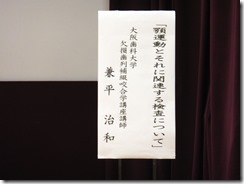 「顎運動とそれに関連する検査について」
大阪歯科大学
欠損歯列補綴咬合学講座講師
兼平 治和